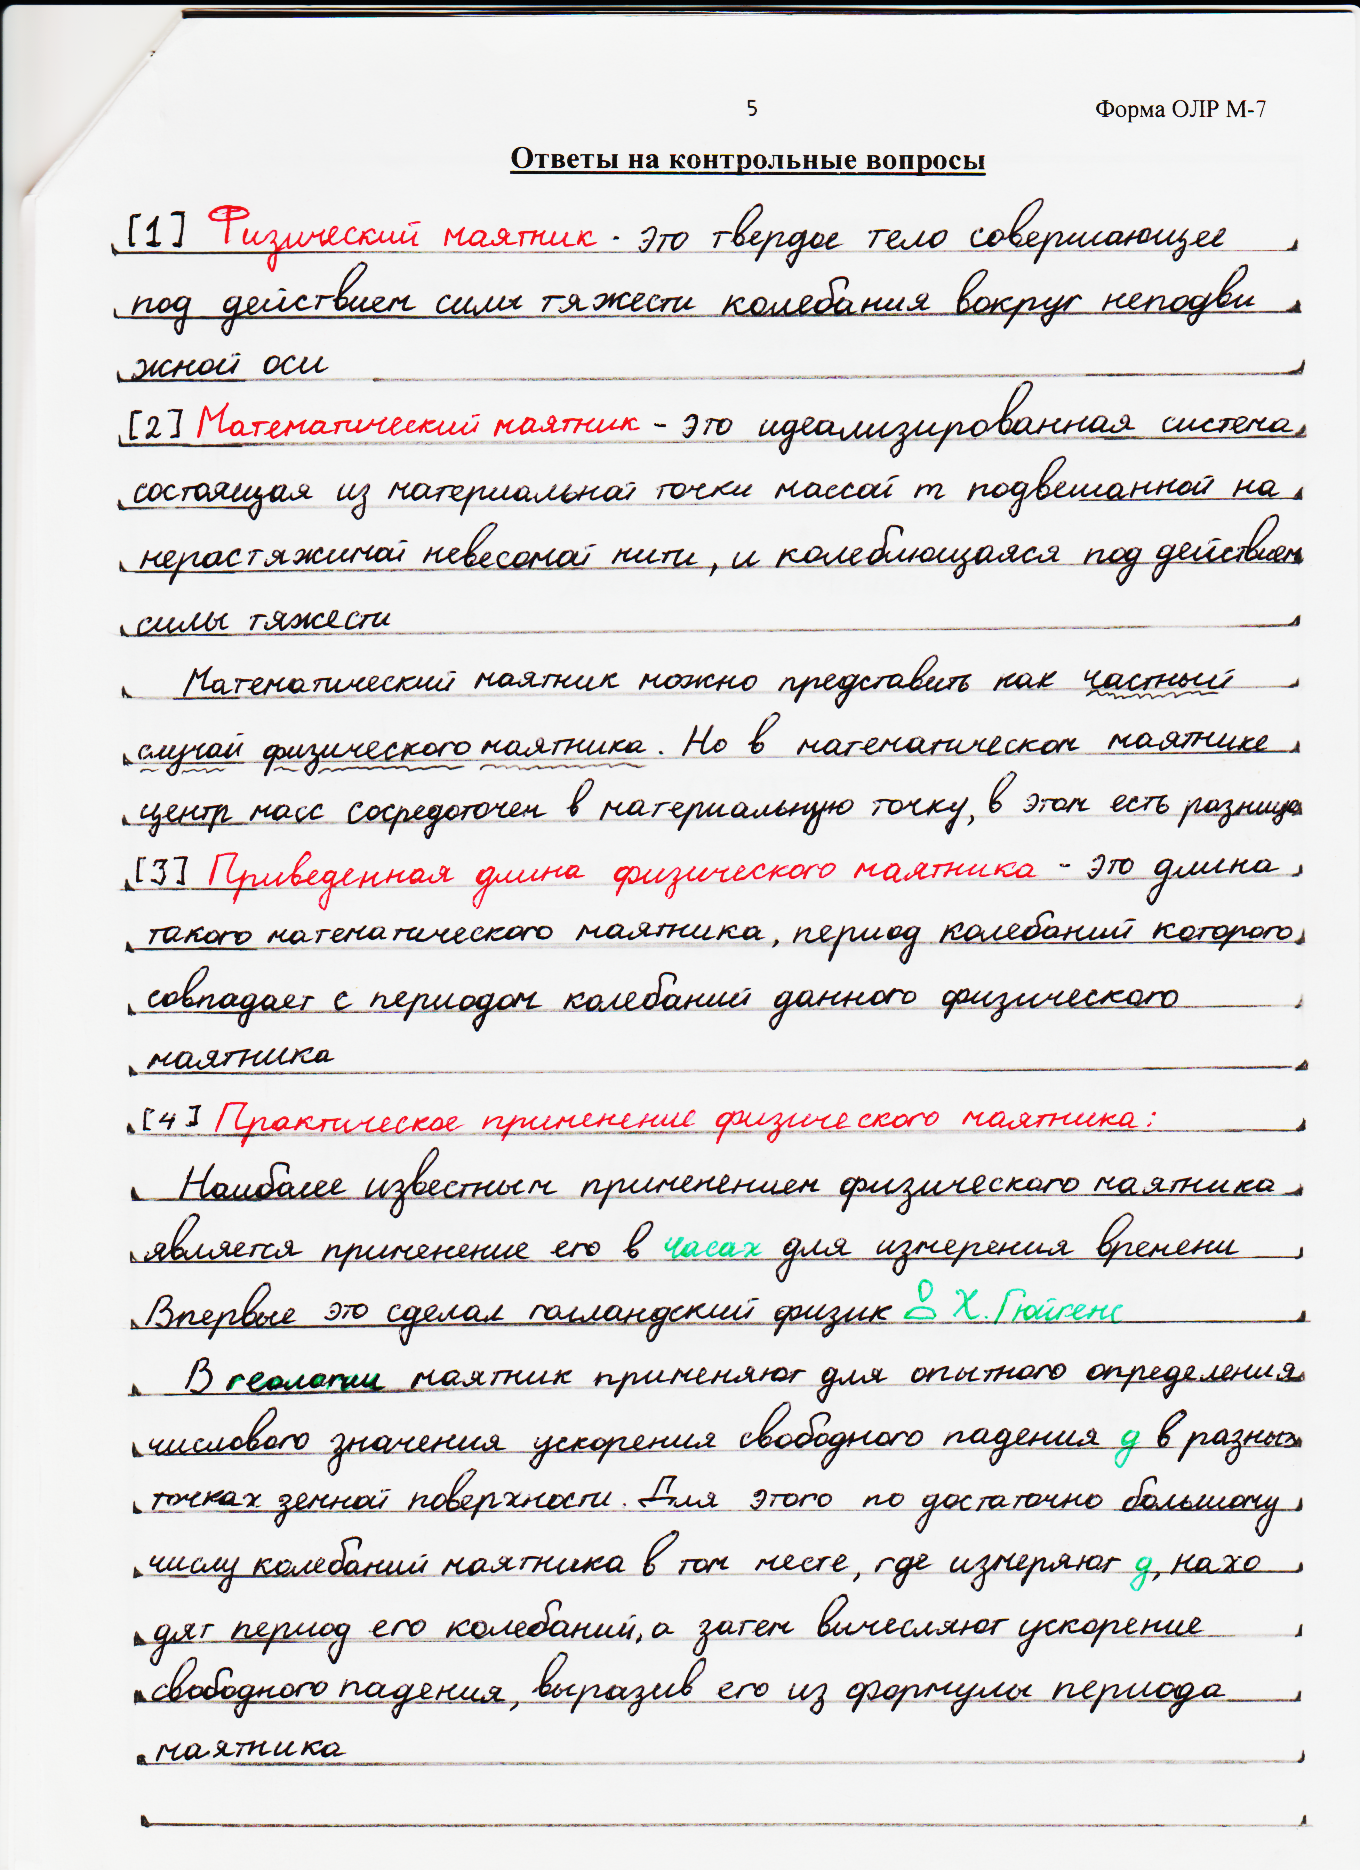 5
Форма ОЛР М-7
Ответы на контрольные вопросы
[1] Физический маятник - это твердое тело совершающее
под действием силы тяжести колебания вокруг неподви
жной оси
[2] Математический маятник - это идеализированная система
состоящая из материальной точки массой m подвешанной на
нерастяжимой невесомой нити, и колеблющаяся под действием
силы тяжести
Математический маятник можно представить как частный
случай физического маятника. Но в математическом маятнике
центр масс сосредоточен в материальную точку, в этом есть разница
[3] Приведенная длина физического маятника - это длина
такого математического маятника, период колебаний которого
совпадает с периодом колебаний данного физического
маятника
[4] Практическое применение физического маятника:
Наиболее известным применением физического маятника
является применение его в часах для измерения времени
Впервые это сделал голландский физик Х. Гюйгенс
В геологии маятник применяют для опытного определения
числового значения ускорения свободного падения g в разных
точках земной поверхности. Для этого по достаточно большому
числу колебаний маятника в том месте, где измеряют g, нахо
дят период его колебаний, а затем вычесляют ускорение
свободного падения, выразив его из формулы периода
маятника